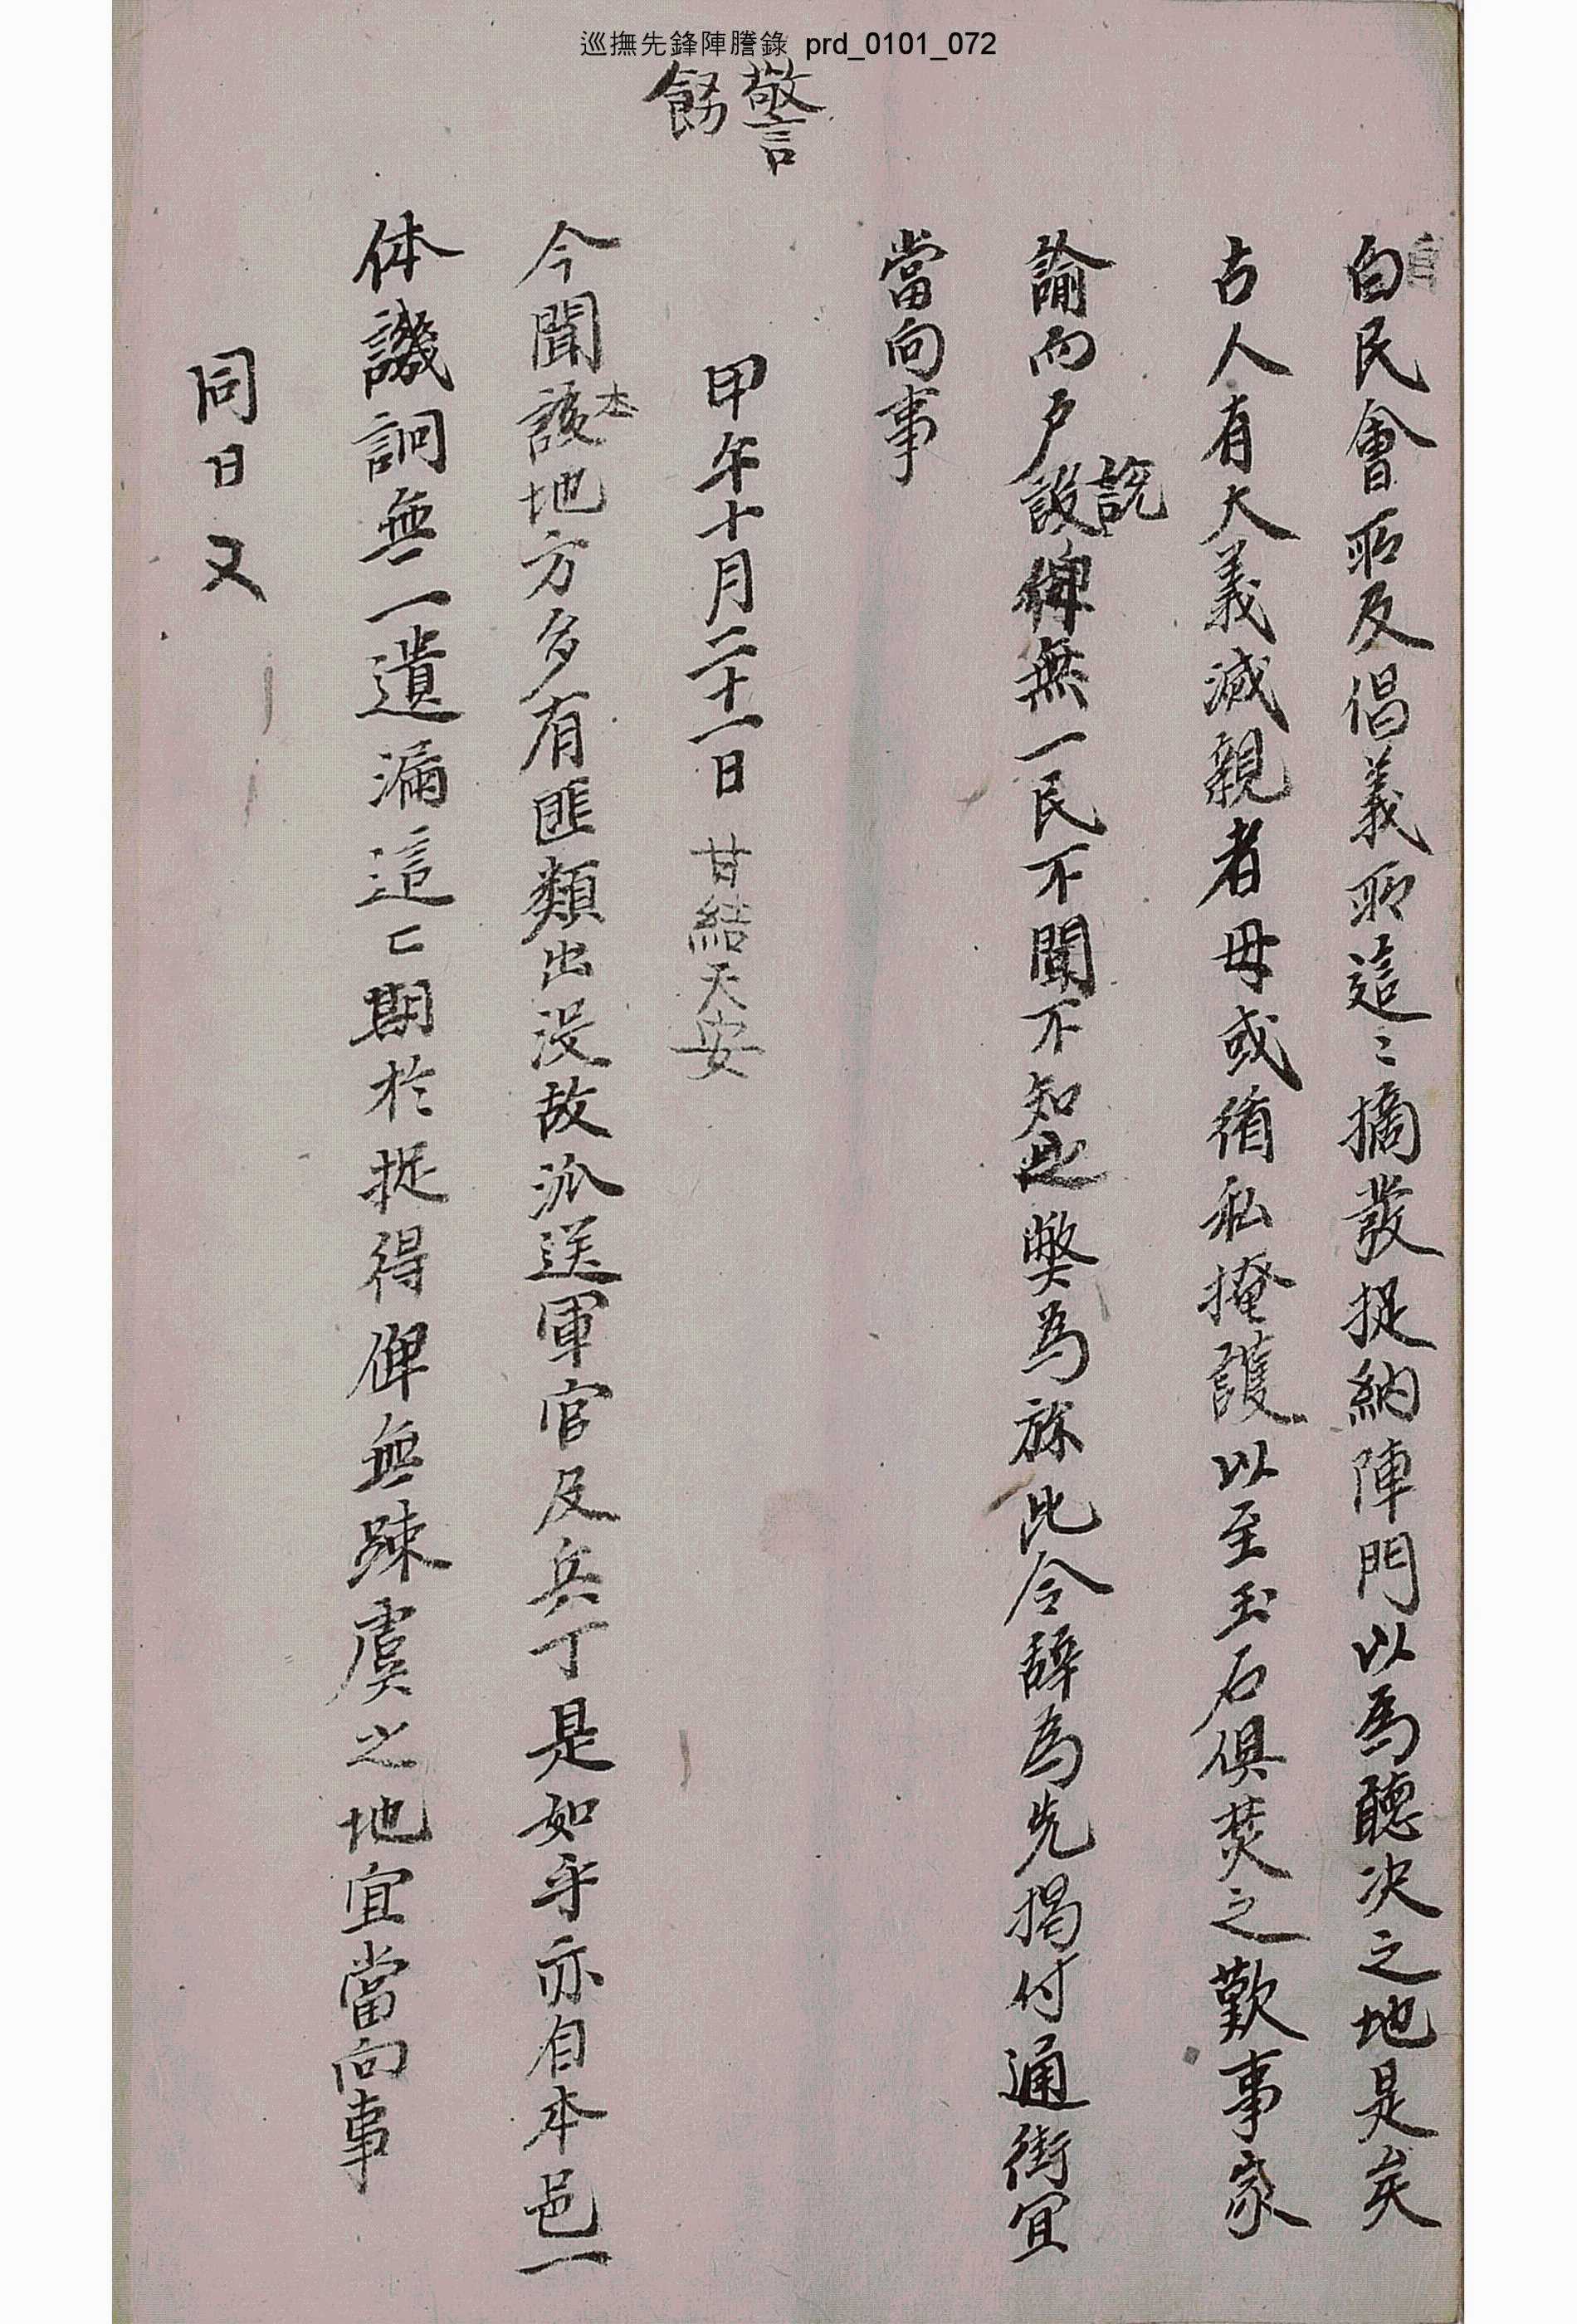 巡撫先鋒陣謄錄 prd_0101_072
自
白民會所及倡義所這〻摘發捉納陣門以爲聽决之地是矣
古人有大義滅親者毋或循私掩護以至玉石俱焚之歎事家
諭而戶說俾無一民不聞不知之弊爲旀此令辞爲先揭付通街宜
說
當向事
警
飭
甲午十月二十一日 甘結天安
今聞該地方多有匪類出沒故派送軍官及兵丁是如乎亦自本邑一
本
体譏詗無一遺漏這這期於捉得俾無踈虞之地宜當向事
同日 又